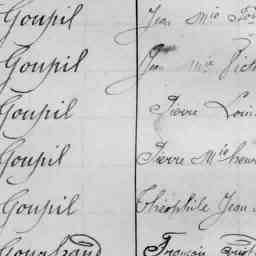 Goupil Jean Mie
Goupil Jean Mie
Goupil Pierre Louis
Goupil Pierre Mie
Goupil Théophile Jean
François